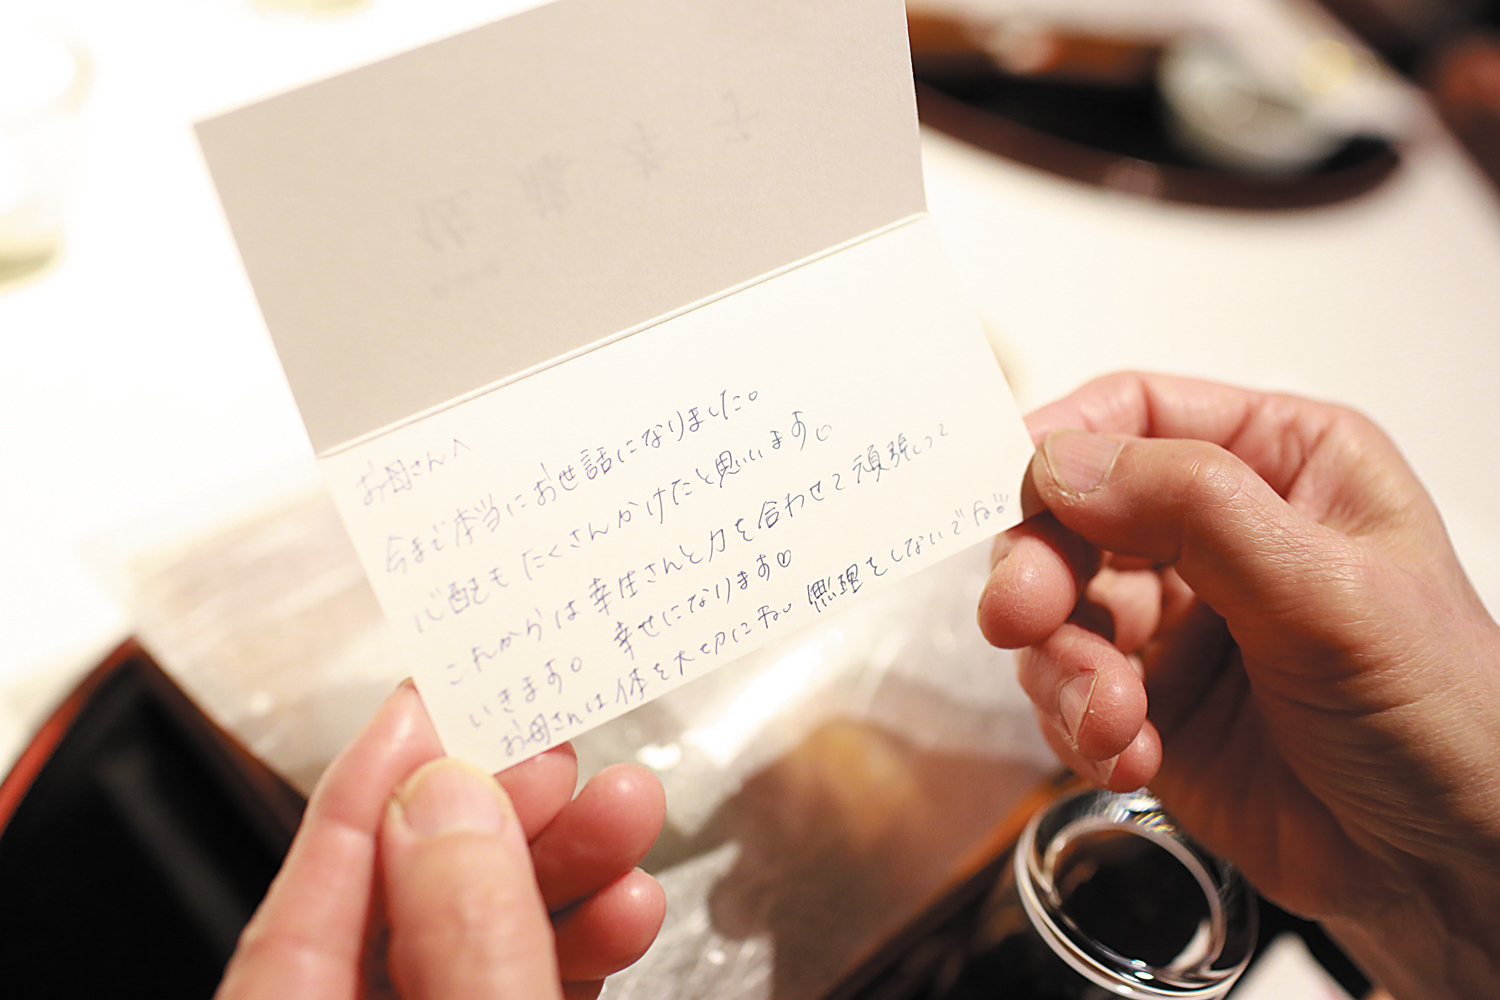 お母さんへ
今まで本当にお世話になりました。
心配もたくさんかけたと思います。
これからは幸生さんと力を合わせて頑張って
いきます。幸せになります♡
お母さんは体を大切にネ。無理をしないでネ!!